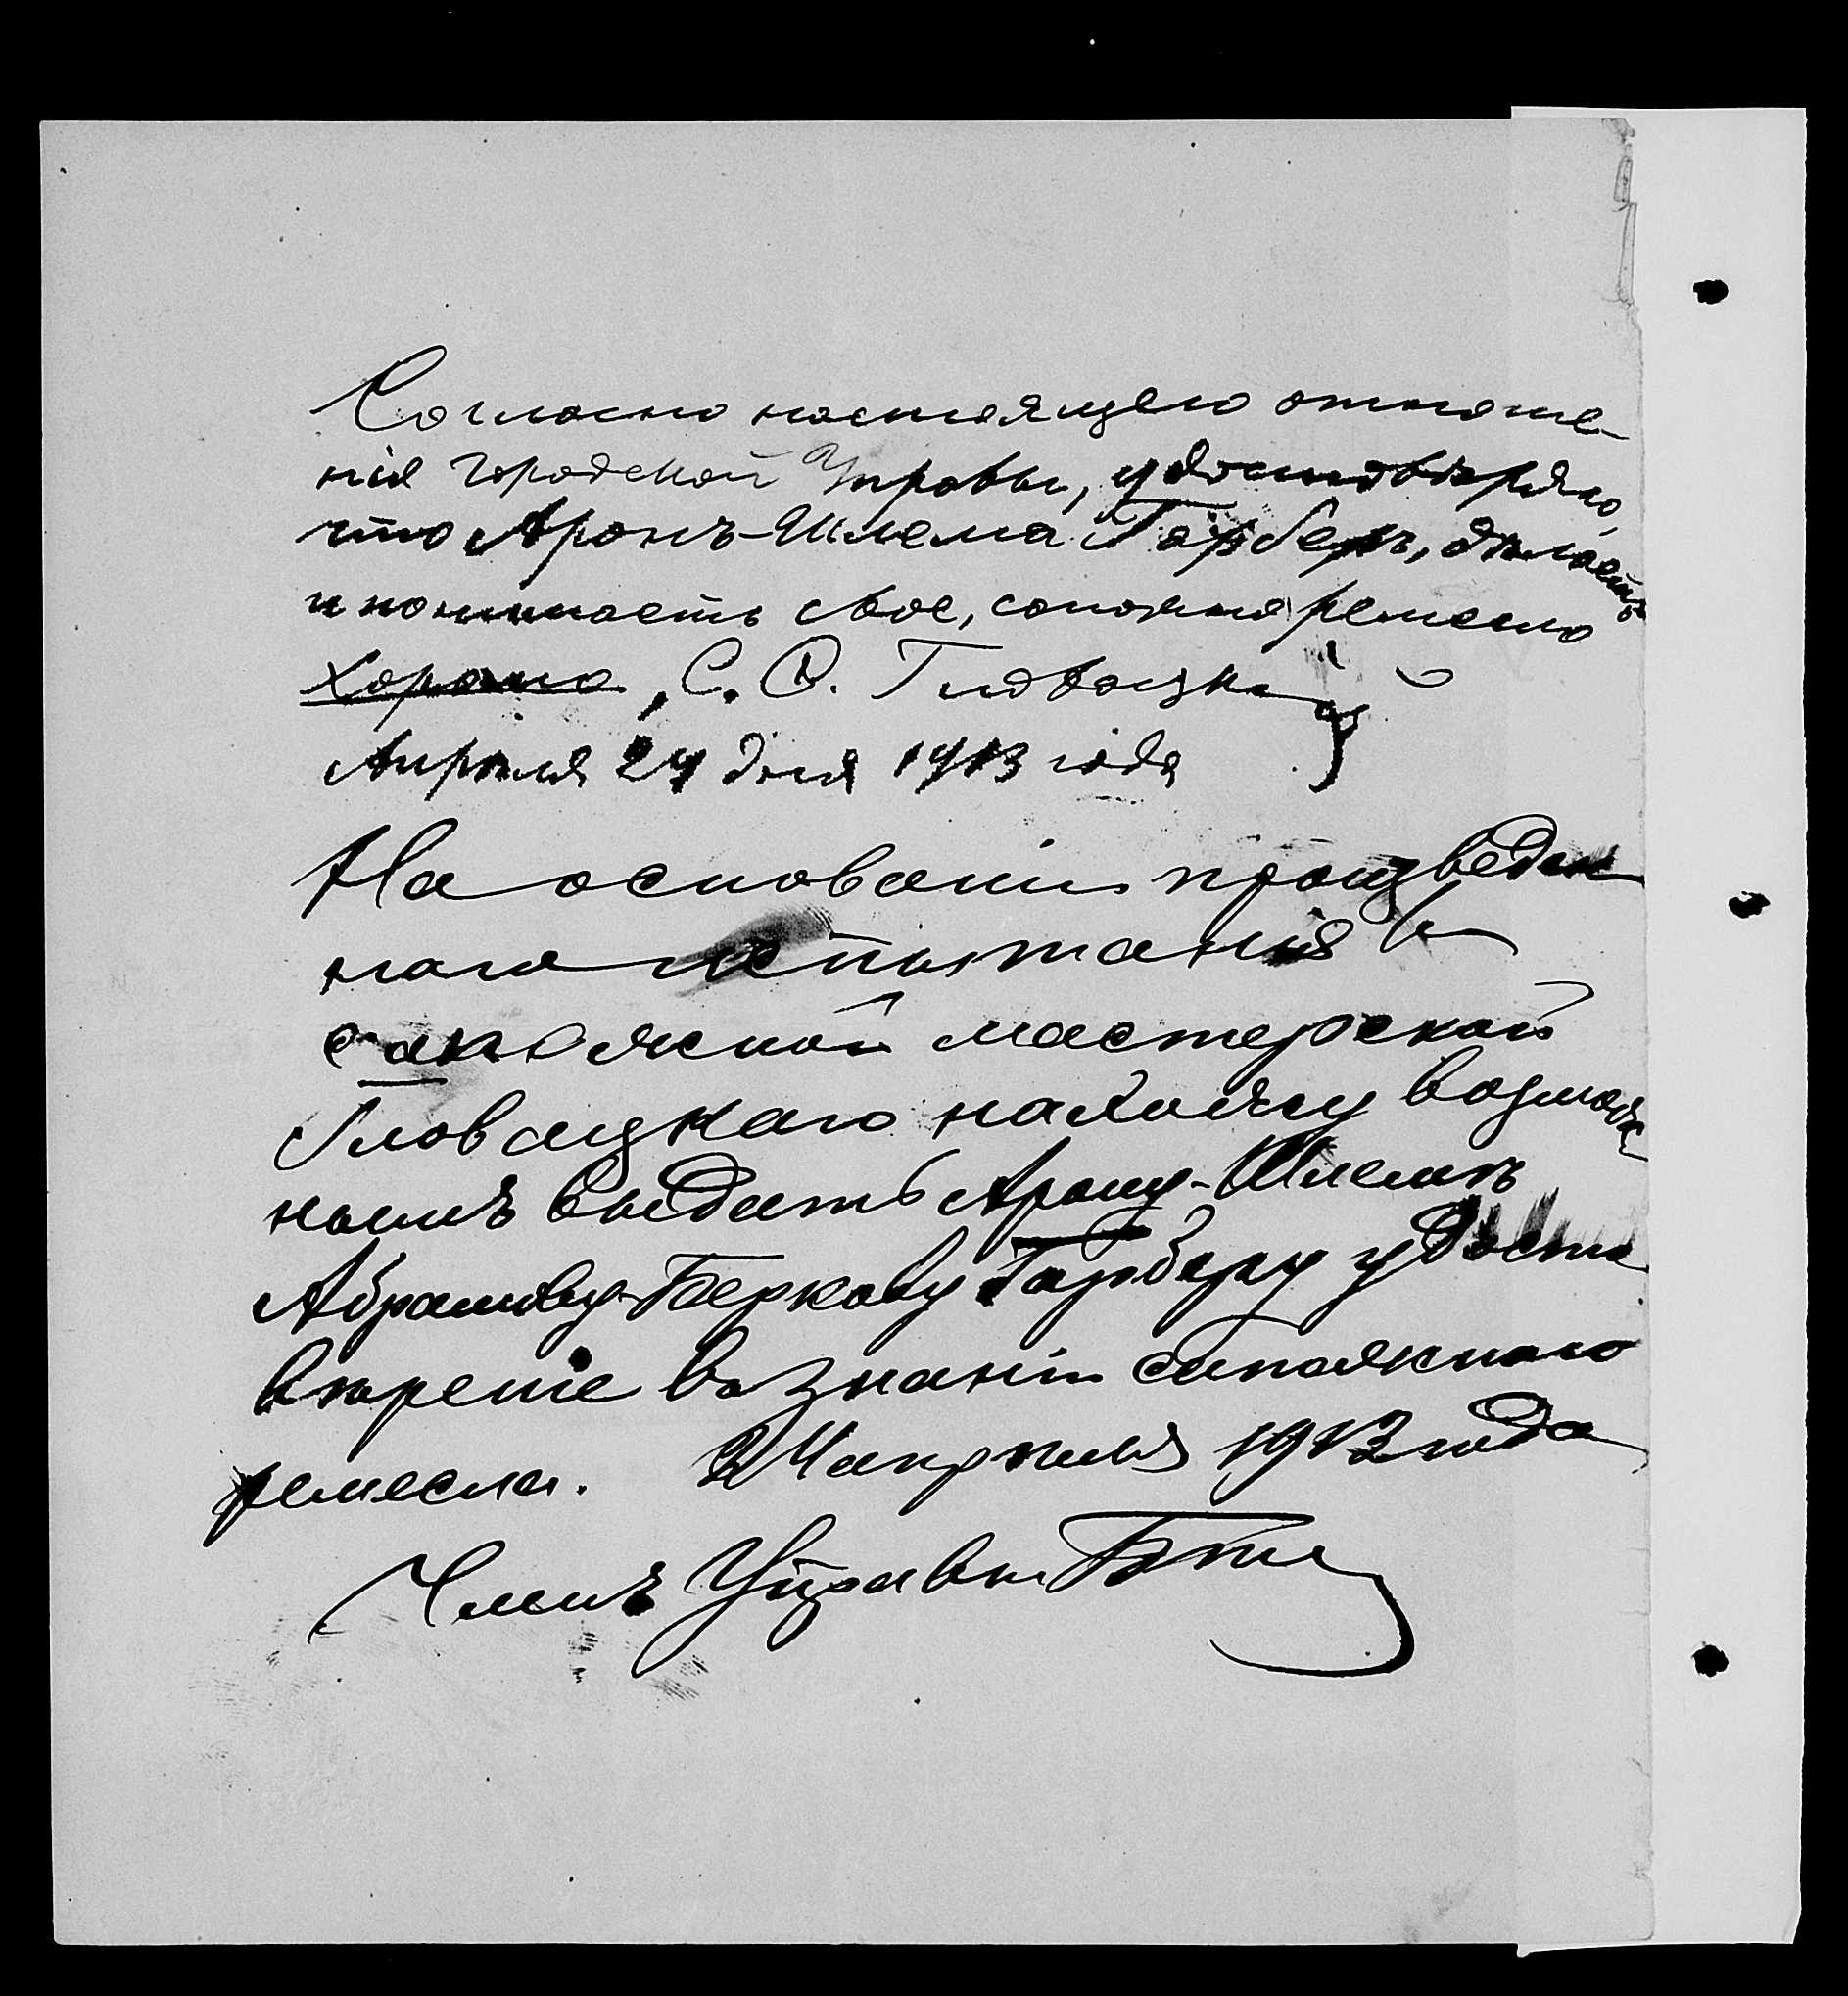 Согласно настоящего отноше-
нія Городской Управы, удостовѣряю,
что Аронъ-Шлема Гарберъ, дѣлаетъ
и понимаетъ свое, сапожное ремесло
хорошо, С. О. Гловацкій
Апрѣля 24 дня 1913 года
На основаніи произведен
наго испытанія в
сапожной мастерской
Гловацкаго нахожу возмож
нымъ выдать Арону-Шлемѣ
Абрамову-Беркову Гарберу удосто
вѣреніе въ знаніи сапожнаго
ремесла. 24 апрѣля 1913 года
Членъ Управы